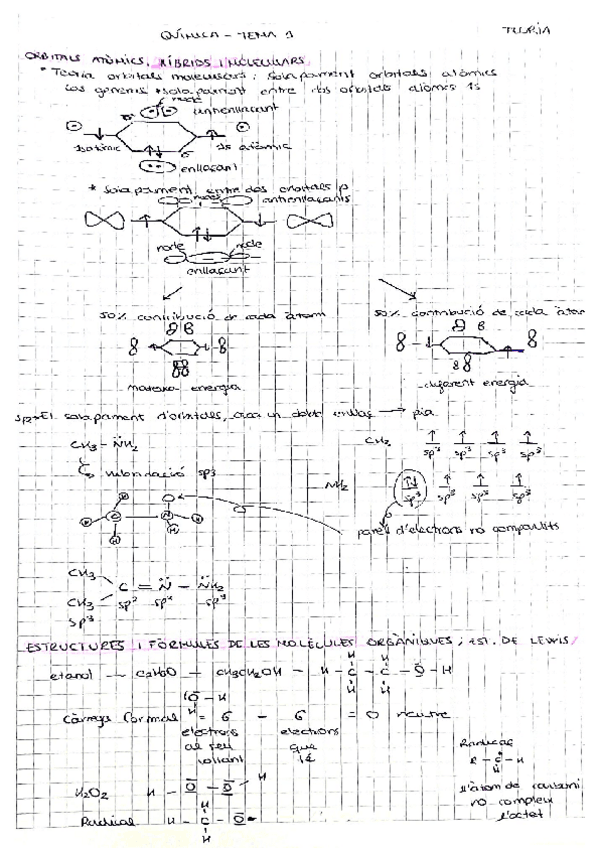 QUÍMICA - TEMA 1
TEORIA
ORBITALS ATÒMICS, HÍBRIDS I MOLECULARS
* Teoria orbitals moleculars: solapament orbitals atòmics
* solapament entre dos orbitals atòmics 1s
node
antienllaçant
1s atòmic
1s atòmic
enllaçant
* solapament entre dos orbitals p
nodes
antienllaçants
node
node
enllaçant
50% contribució de cada àtom
50% contribució de cada àtom
mateixa energia
diferent energia
sp2 → El solapament d'orbitals, crea un doble enllaç → pia
CH3 - NH2
hibridació sp3
CH3
sp3 sp3 sp3 sp3
NH2
sp3 sp3 sp3 sp3
parell d'electrons no compartits
CH3
C = N - NH2
CH3 sp2 sp2 sp3
sp3
ESTRUCTURES I FÓRMULES DE LES MOLÈCULES ORGÀNIQUES; EST. DE LEWIS
etanol - C2H6O - CH3CH2OH - H - C - C - O - H
H H
H H
O - H
H
Càrrega formal = 6 - 6 = 0 neutre
electrons electrons
al seu que
voltant té
Radical
R - C - H
H
l'àtom de carboni
no compleix
l'octet
H2O2 H - O - O H
Radical H - C - O
H
H